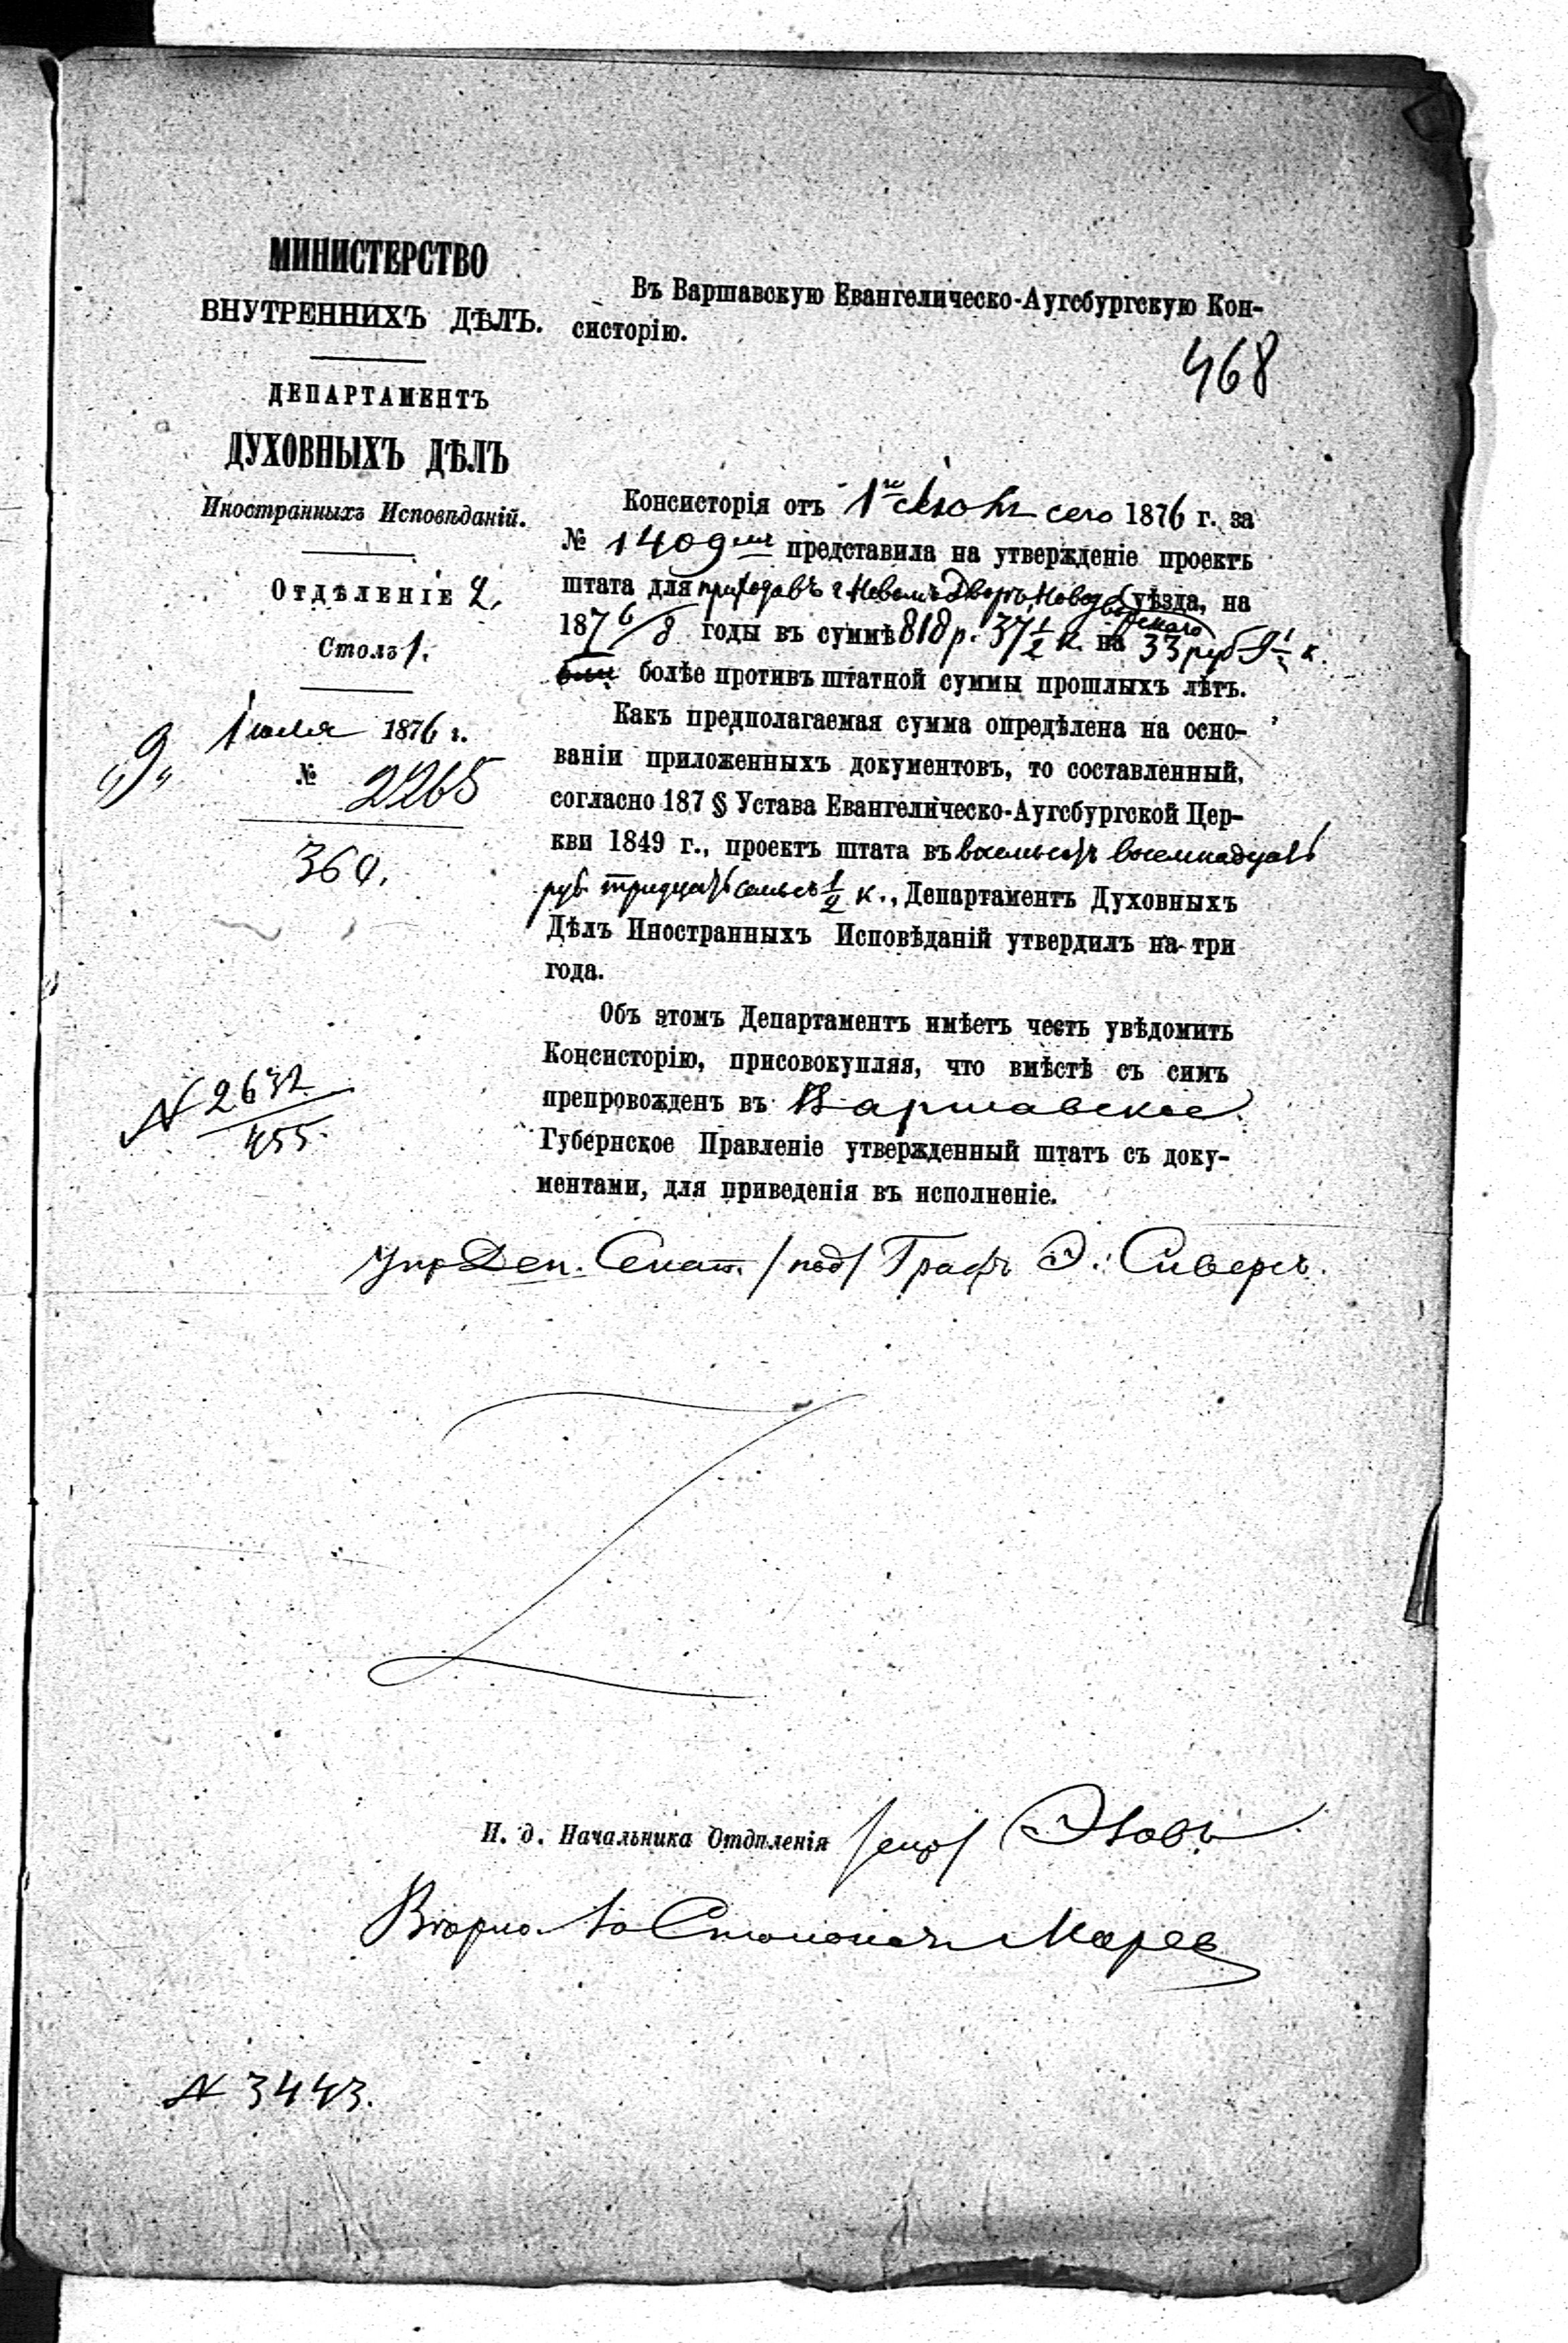 МИНИСТЕРСТВО
ВНУТРЕННИХЪ ДѢЛЪ.
ДЕПАРТАМЕНТЪ
ДУХОВНЫХЪ ДѢЛЪ
Иностранныхъ Исповѣданій.
Отдѣленіе 2.
Столъ 1.
1 июля 1876 г.
№ 2265
360.
№ 2632
455.
Въ Варшавскую Евангелическо-Аугсбургскую Кон-
систорію.
468
Консисторія отъ 1 сего 1876 г. за
№ 1409 представила на утвержденіе проектъ
штата для прихода въ г. Новомъ Дворѣ, Новодворскаго уѣзда, на
1876/8 годы въ суммѣ 818 р. 37 1/2 к. на 33 руб 9 1/2 к.
болѣе противъ штатной суммы прошлыхъ лѣтъ.
Какъ предполагаемая сумма опредѣлена на осно-
ваніи приложенныхъ документовъ, то составленный,
согласно 187 § Устава Евангелическо-Аугсбургской Цер-
кви 1849 г., проектъ штата въ восемьсотъ восемнадцать
руб. тридцать семь съ 1/2 к., Департаментъ Духовныхъ
Дѣлъ Иностранныхъ Исповѣданій утвердилъ на три
года.
Объ этомъ Департаментъ имѣетъ честь увѣдомить
Консисторію, присовокупляя, что вмѣстѣ съ симъ
препровожденъ въ Варшавское
Губернское Правленіе утвержденный штатъ съ доку-
ментами, для приведенія въ исполненіе.
Упр. Деп. Сенат. /под/ Графъ Э. Сиверсъ.
И. д. Начальника Отдѣленія
№ 3443.